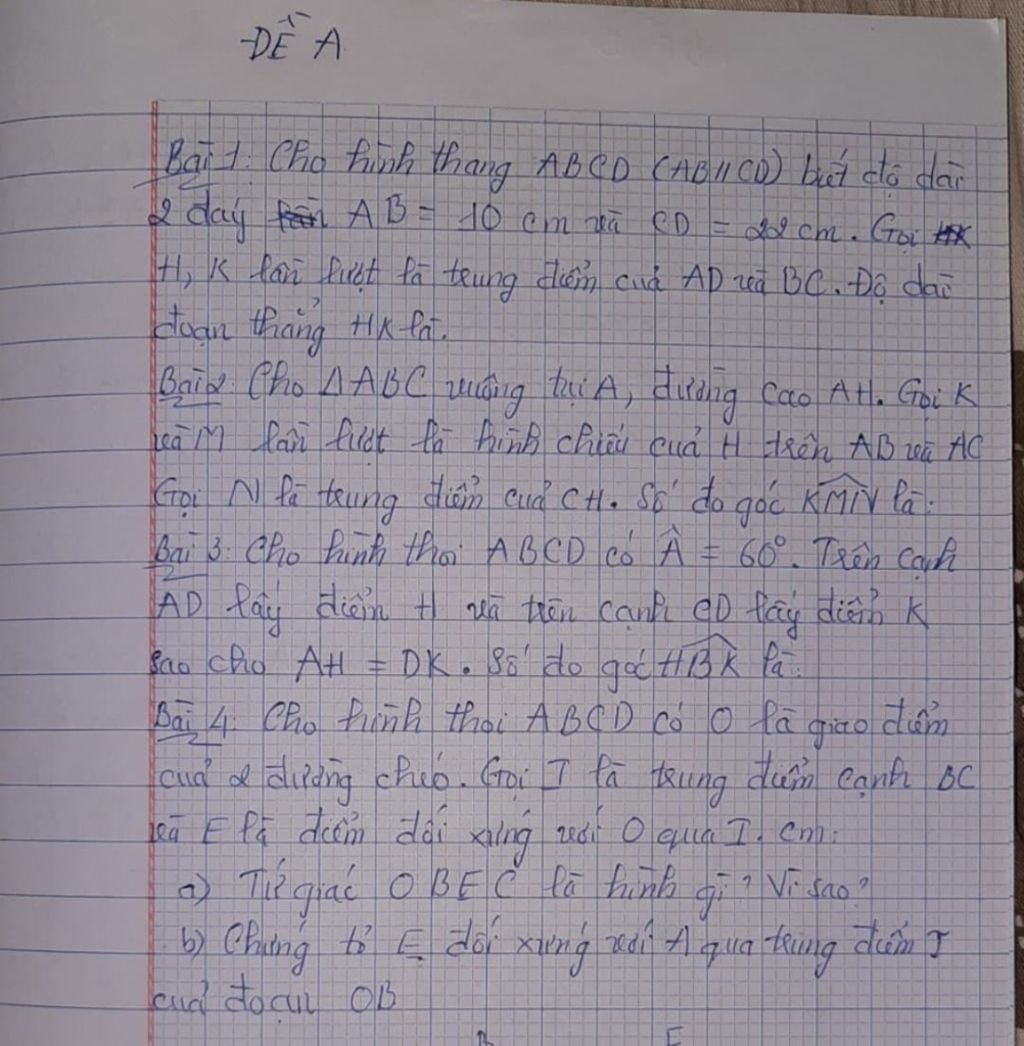 ĐỀ A
Bài 1: Cho hình thang ABCD (AB//CD) biết độ dài
2 đáy AB = 10 cm và CD = 22 cm. Gọi
H, K lần lượt là trung điểm của AD và BC. Độ dài
đoạn thẳng HK là:
Bài 2: Cho ΔABC vuông tại A, đường cao AH. Gọi K
và M lần lượt là hình chiếu của H trên AB và AC
Gọi N là trung điểm của CH. Số đo góc KMN là:
Bài 3: Cho hình thoi ABCD có Â = 60°. Trên cạnh
AD lấy điểm H và trên cạnh CD lấy điểm K
sao cho AH = DK. Số đo góc HBK là:
Bài 4: Cho hình thoi ABCD có O là giao điểm
của 2 đường chéo. Gọi I là trung điểm cạnh BC
và E là điểm đối xứng với O qua I. Cm:
a) Tứ giác OBEC là hình gì? Vì sao?
b) Chứng tỏ E đối xứng với A qua trung điểm J
của đoạn OB
B E